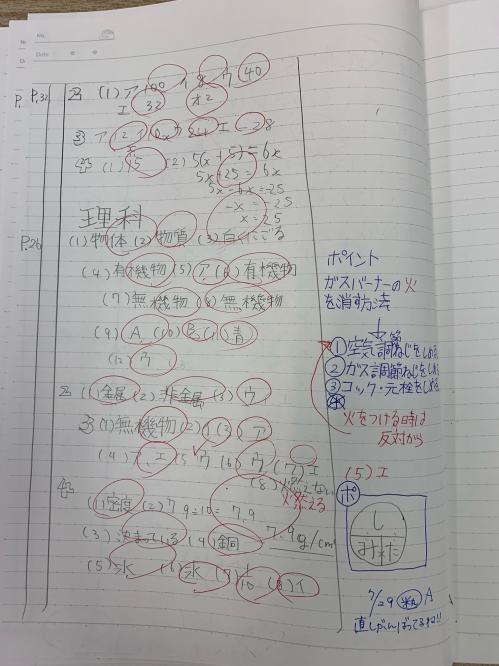 No.
Date
P. P.32 2 (1) ア 100 イ 8 ウ 40
エ 32 オ 2
3 ア 12 イ 10x ウ エ -28
4 (1) 15 (2) 5(x+5)=6x
5x+25=6x
5x-6x=-25
-x=-25
x=25
理科
P.26 (1)物体 (2)物質 (3)白くにごる
(4)有機物 (5)ア (6)有機物
(7)無機物 (8)無機物
(9) A (10) B (11)青
(12) ウ
2 (1)金属 (2)非金属 (3)ウ
3 (1)無機物 (2)イ (3)ア
(4)ア、エ (5)ウ (6)ウ (7)エ
(8)火が燃えない
燃える
4
(1)密度 (2) 79÷10=7.9
7.9g/cm³
(3)決まっている (4)銅
(5)水 (6)氷 (7)1/10 (8)イ
ポイント
ガスバーナーの火
を消す方法
↓
①空気調節ねじをしめる
②ガス調節ねじをしめる
③コック・元栓をしめる
火をつける時は
反対から
(5)エ
ポ
し
み た
7/29 A
直しがんばってるね!!